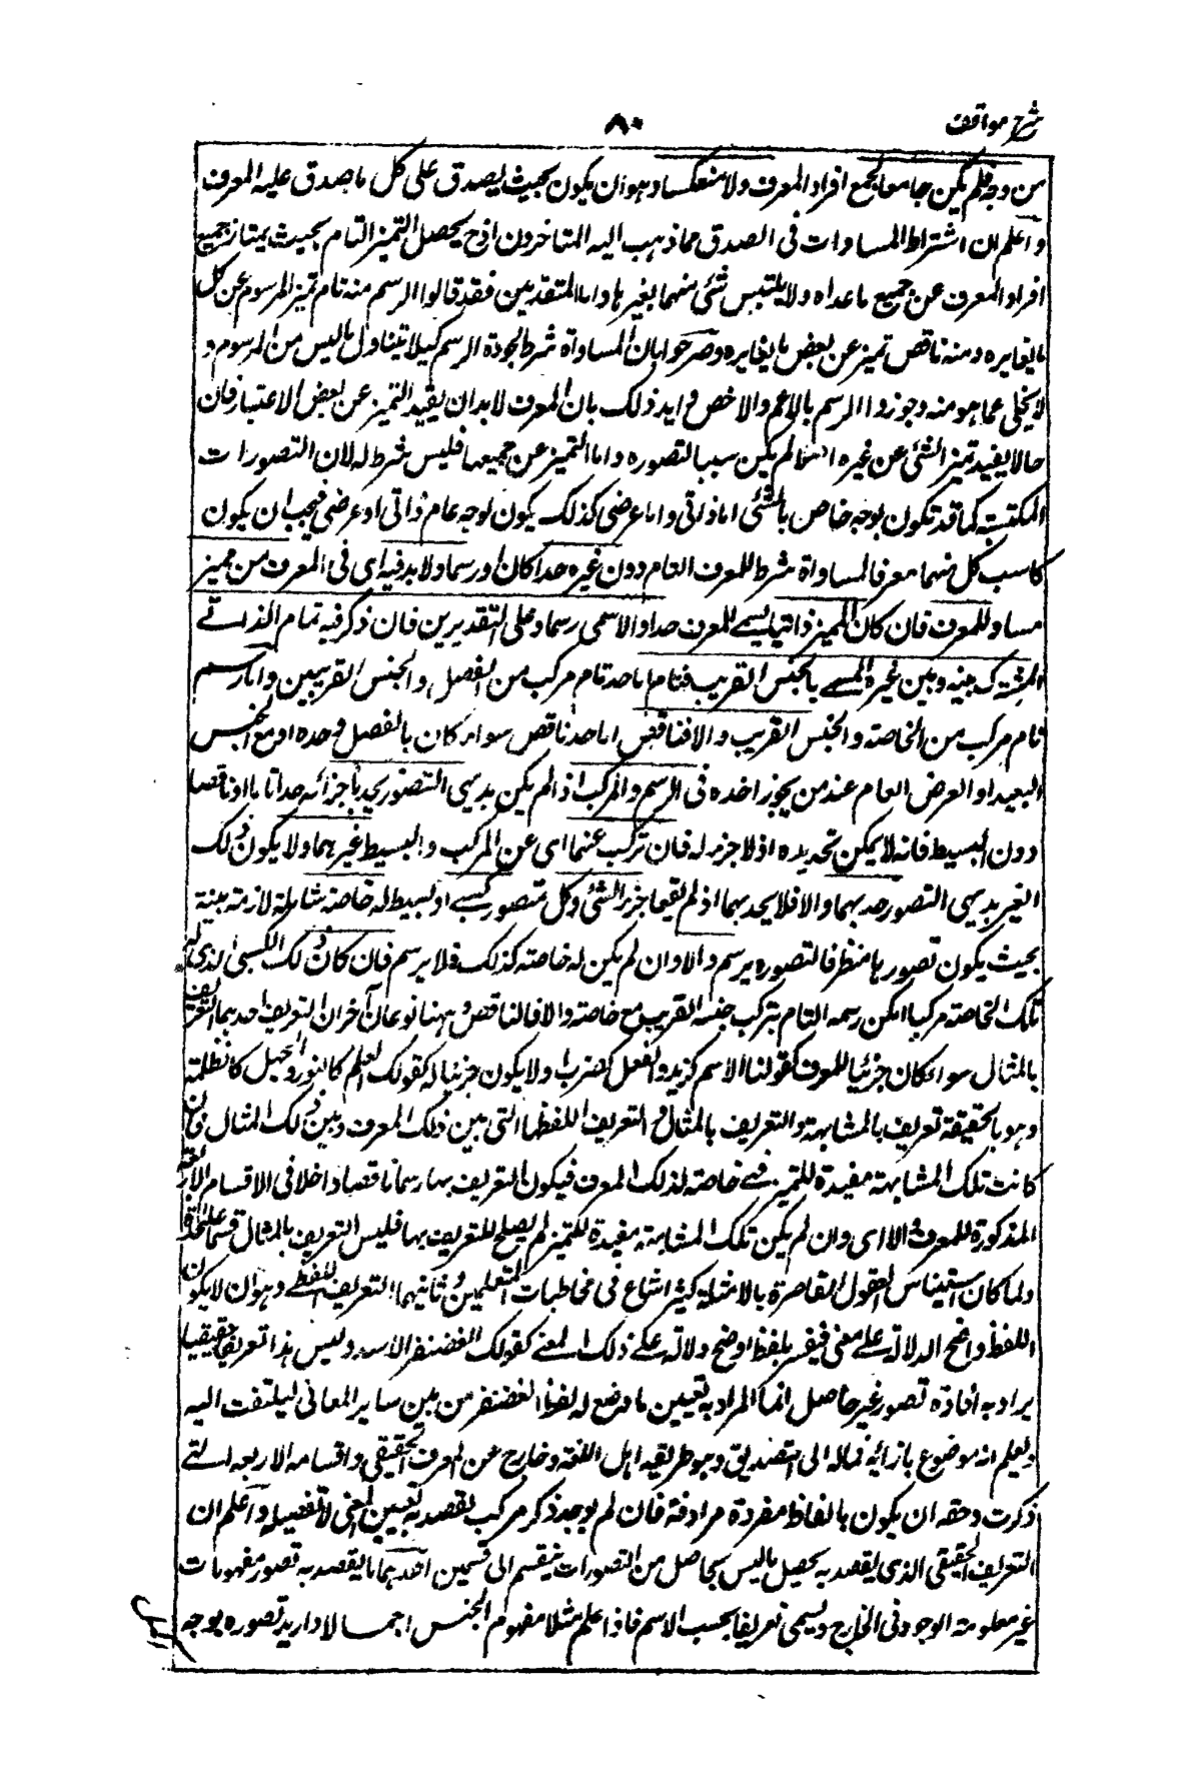 شرح مواقف
٨٠
من وجه فلم يكن جامعا لجميع افراد المعرف ولا منعكسا وهو ان يكون بحيث يصدق على كل ما صدق عليه المعرف
واعلم ان اشتراط المساوات فى الصدق مما ذهب اليه المتاخرون اذ ح يحصل التميز التام بحيث يمتاز جميع
افراد المعرف عن جميع ما عداه ولا يلتبس شئ منهما بغيرها واما المتقدمين فقد قالوا الرسم منه تام تميز المرسوم عن كل
ما يغايره ومنه ناقص تميز عن بعض ما يغايره وصرحوا بان المساواة شرط لجودة الرسم كيلا يتناول ما ليس من المرسوم و
لا يخلى عما هو منه وجوزوا الرسم بالاعم والاخص و ايد ذلك بان المعرف لا بد ان يفيد التميز عن بعض الاغيار فان
مالا يفيد تميز الشئ عن غيره اصلا لم يكن سببا لتصوره واما التميز عن جميعها فليس شرط له لان التصورات
المكتسبة كما قد تكون بوجه خاص بالشئ اما ذاتى واما عرضى كذلك يكون لوجه عام ذاتى او عرضى فيجب ان يكون
كاسب كل منهما معرفا فالمساواة شرط للمعرف التام دون غيره حدا كان او رسما ولا بد فيه اى فى المعرف من مميز
مساو للمعرف فان كان المميز ذاتيا يسمى المعرف حدا والا سمى رسما وعلى التقديرين فان ذكر فيه تمام الذاتى
المشترك بينه وبين غيره المسمى بالجنس القريب فتام اما حد تام مركب من الفصل والجنس القريبين واما رسم
تام مركب من الخاصة والجنس القريب والا فناقص اما حد ناقص سواء كان بالفصل وحده او مع الجنس
البعيد او العرض العام عند من يجوز اخذه فى الرسم والمركب اذا لم يكن بديهى التصور يحد باجزائه حدا تاما او ناقصا
دون البسيط فانه لا يمكن تحديده اذ لا جزء له فان تركب عنهما اى عن المركب والبسيط غيرهما ولا يكون ذلك
الغير بديهى التصور حد بهما والا فلا يحد بهما اذ لم يقعا جزء الشئ وكل متصور كسبى او بسيط له خاصة شاملة لازمة بينة
بحيث يكون تصورها منظرفا لتصوره يرسم والا وان لم يكن له خاصة كذلك فلا يرسم فان كان ذلك الكسبى الذى له
تلك الخاصة مركبا امكن رسمه التام بتركب جنسه القريب مع خاصته والا فالناقص وههنا نوعان آخران للتعريف احدهما التعريف
بالمثال سواء كان جزئيا للمعرف كقولنا الاسم كزيد والفعل كضرب او لا يكون جزئيا له كقولك العلم كالنور والجهل كالظلمة
وهو بالحقيقة تعريف بالمشابهة والتعريف بالمثال و التعريف اللفظى التى بين ذلك المعرف وبين ذلك المثال فان
كانت تلك المشابهة مفيدة للتميز فهى خاصة لذلك المعرف فيكون التعريف بها رسما ناقصا داخلا فى الاقسام الاربعة
المذكورة للمعرف والا اى وان لم يكن تلك المشابهة مفيدة للتميز لم يصلح للتعريف بها فليس التعريف بالمثال قسما على حدة
ولما كان استيناس العقول القاصرة بالامثلة كثيرا شاع فى مخاطبات المتعلمين وثانيهما التعريف اللفظى وهو ان لا يكون
اللفظ واضح الدلالة على معنى فيفسر بلفظ اوضح دلالة على ذلك المعنى كقولك الغضنفر الاسد وليس هذا تعريفا حقيقيا
يراد به افادة تصور غير حاصل انما المراد به تعيين ما وضع له لفظ الغضنفر من بين ساير المعانى ليلتفت اليه
ويعلم انه موضوع بازائه فماله الى التصديق وهو طريقة اهل اللغة وخارج عن المعرف الحقيقى واقسامه الاربعة التى
ذكرت وحقه ان يكون بالفاظ مفردة مرادفة فان لم يوجد ذكر مركب يقصد به تعيين المعنى لا تفصيله واعلم ان
التعريف الحقيقى الذى يقصد به تحصيل ما ليس بحاصل من التصورات ينقسم الى قسمين احدهما ما يقصد به تصور مفهومات
غير معلومة الوجود فى الخارج ويسمى تعريفا بحسب الاسم فاذا علم مثلا مفهوم الجنس اجمالا واريد تصوره بوجه